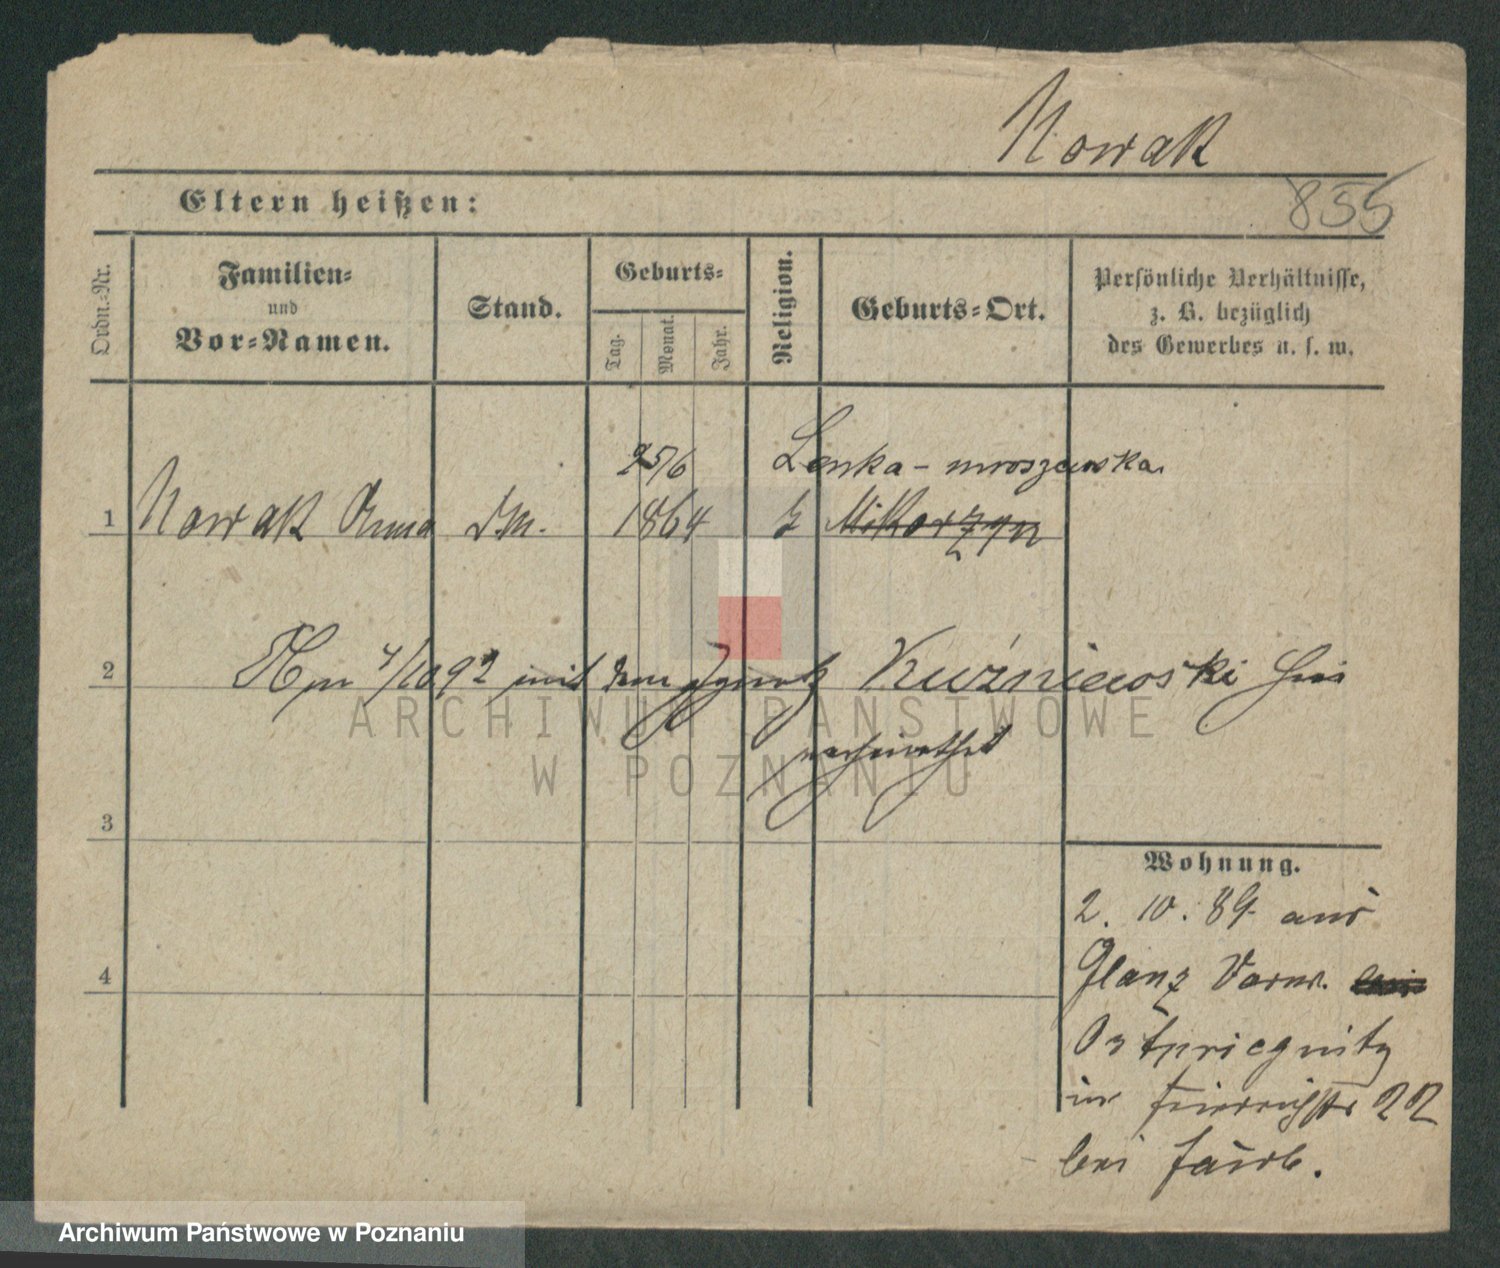 Nowak
855
Eltern heißen:
Ordn.-Nr.
Familien-
und
Vor-Namen.
Stand.
Geburts-
Tag.
Monat.
Jahr.
Religion.
Geburts-Ort.
Persönliche Verhältnisse,
z. B. bezüglich
des Gewerbes u. s. w.
25/6
Lenka - mroszewska
1 Nowak Anna 1864 Mikorzyn
2 4/10 92 mit dem Ignatz Kuźniewski hier
verheirathet
3
Wohnung.
2. 10. 89 aus
Glanz Vorw.
4
Ostpriegnitz
in 22
bei
ARCHIWUM PAŃSTWOWE
W POZNANIU
Archiwum Państwowe w Poznaniu